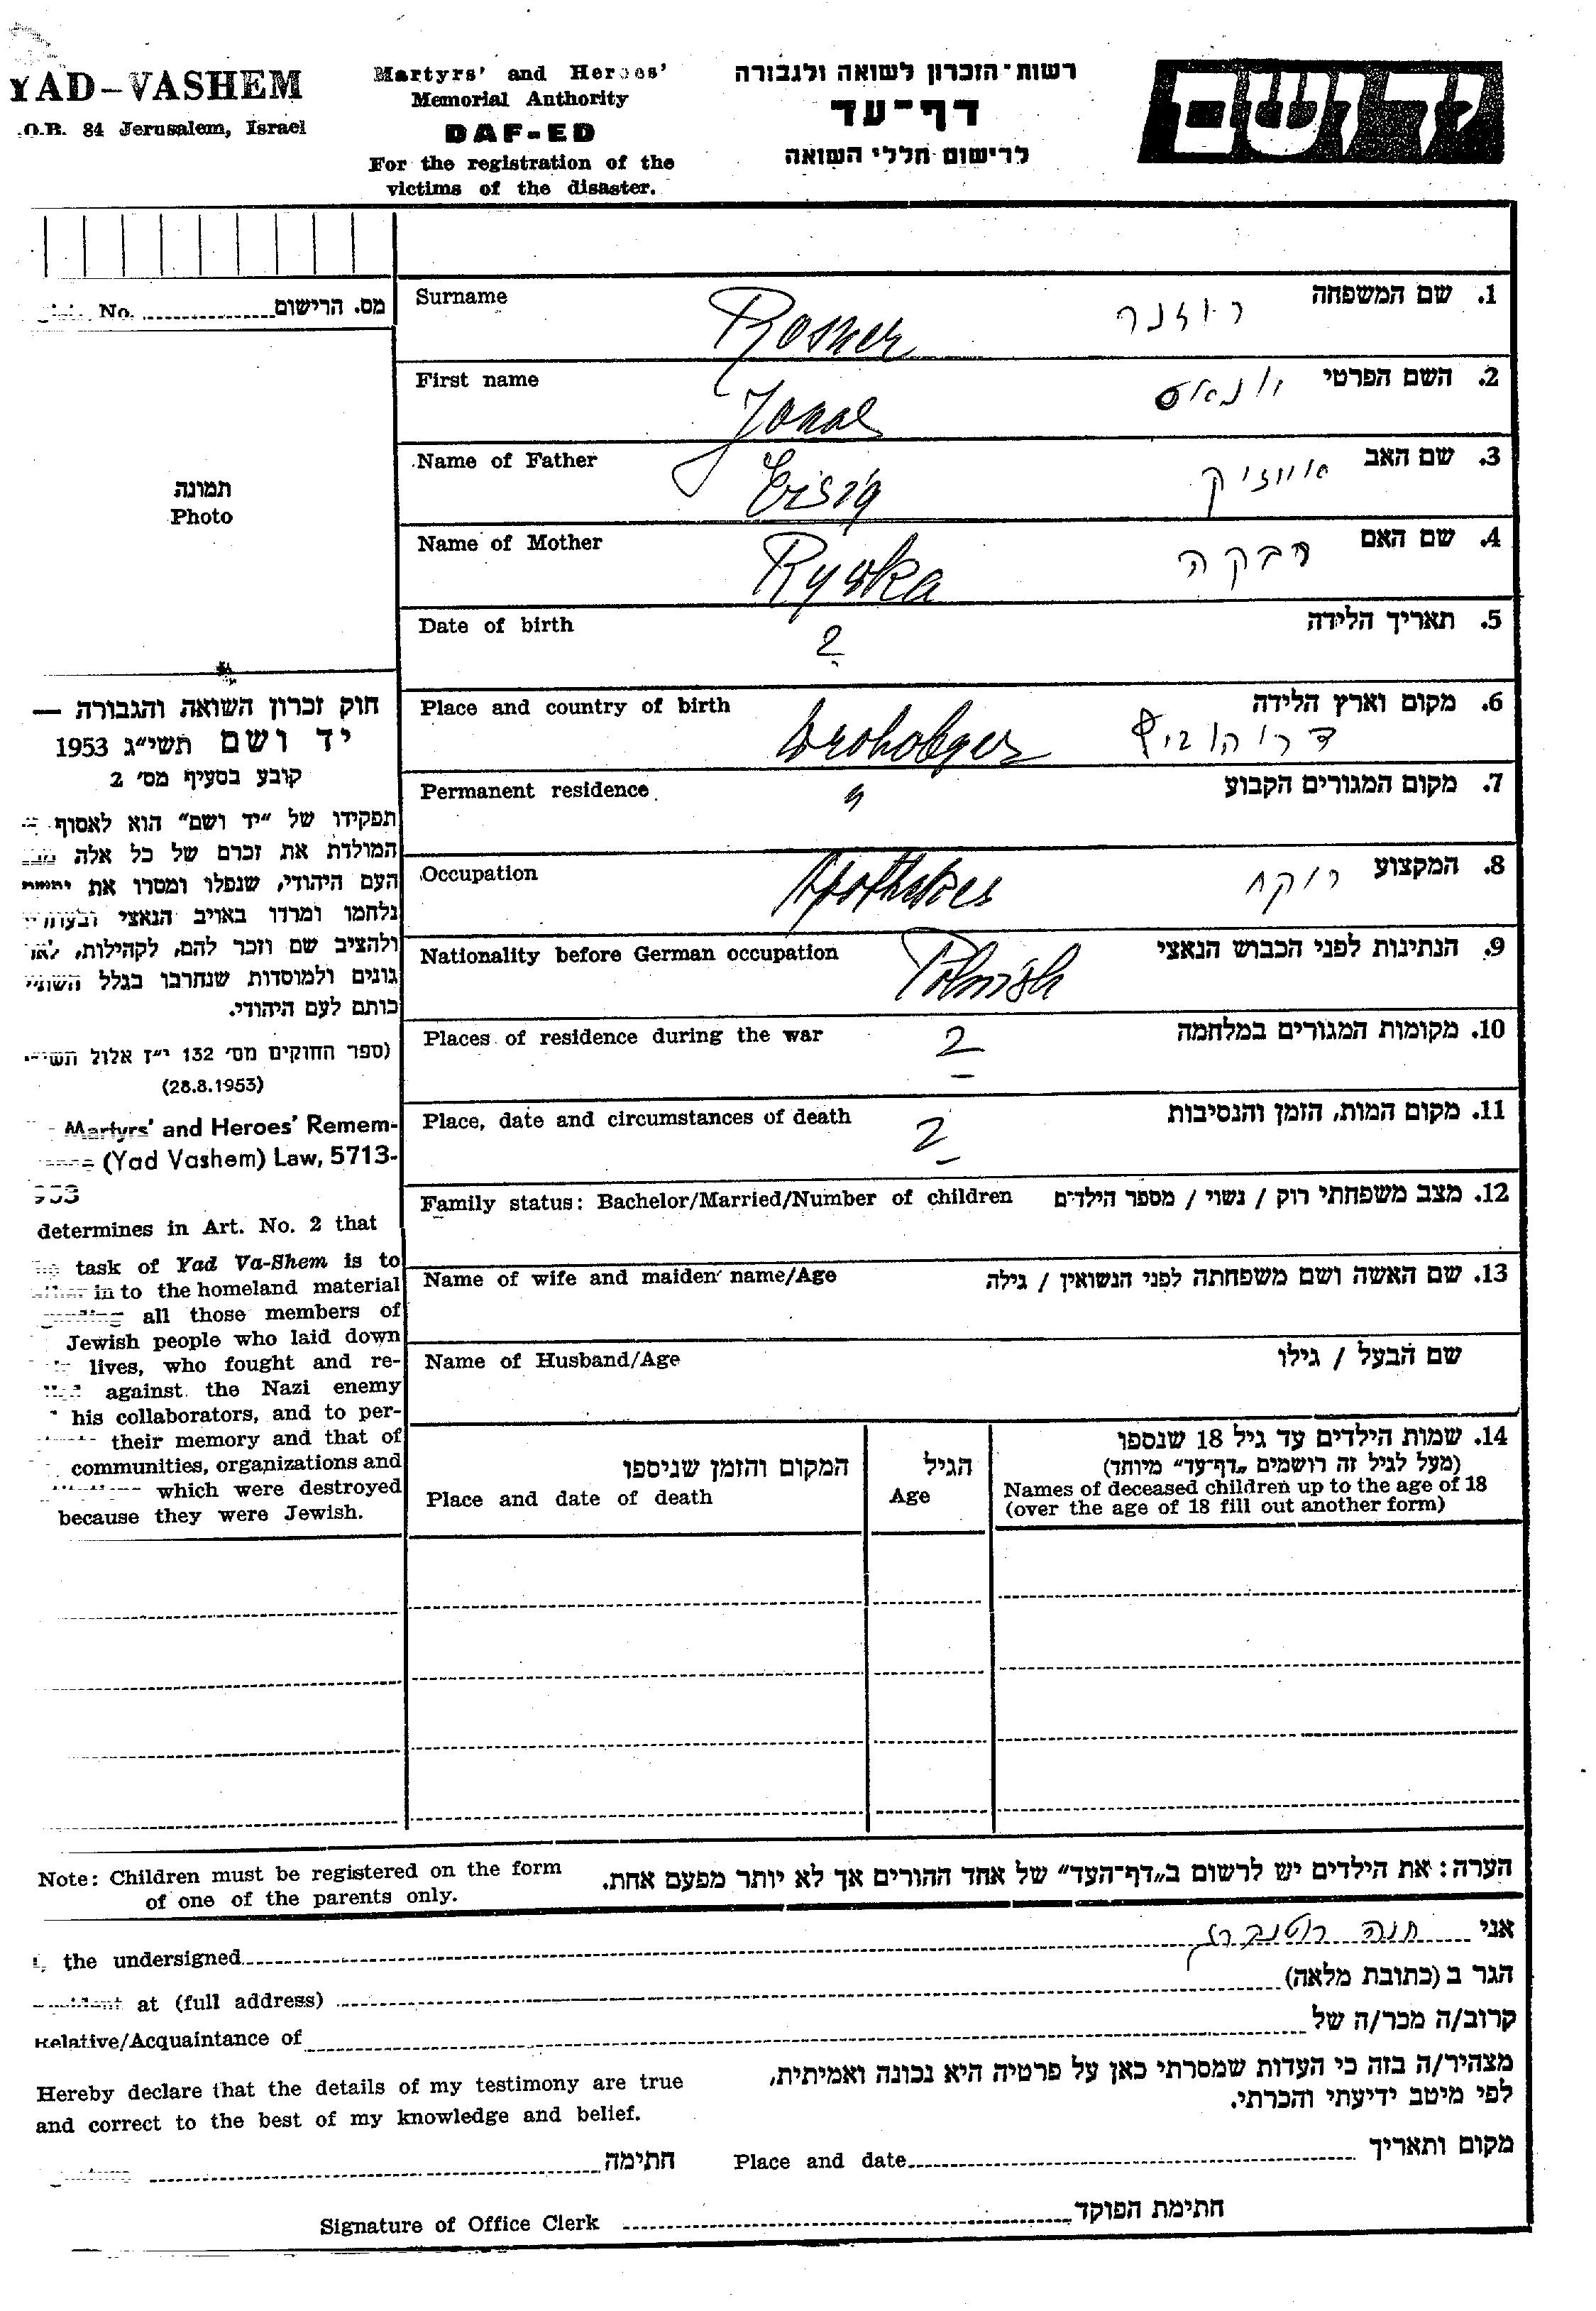 YAD-VASHEM
.O.B. 84 Jerusalem, Israel
Martyrs' and Heroes'
Memorial Anthority
DAF-ED
For the registration of the
victims of the disaster.
רשות-הזכרון לשואה ולגבורה
דף-עד
לרישום חללי השואה
ידושם
No. מס. הרישום
תמונה
Photo
חוק זכרון השואה והגבורה —
יד ושם תשי"ג 1953
קובע בסעיף מס' 2
תפקידו של "יד ושם" הוא לאסוף
המולדת את זכרם של כל אלה
העם היהודי, שנפלו ומסרו את
נלחמו ומרדו באויב הנאצי
ולהציב שם וזכר להם, לקהילות,
גונים ולמוסדות שנחרבו בגלל
כותם לעם היהודי.
(ספר החוקים מס' 132 י"ז אלול
(28.8.1953)
Martyrs' and Heroes' Remem-
(Yad Vashem) Law, 5713-
953
determines in Art. No. 2 that
task of Yad Va-Shem is to
in to the homeland material
all those members of
Jewish people who laid down
lives, who fought and re-
against the Nazi enemy
his collaborators, and to per-
their memory and that of
communities, organizations and
which were destroyed
because they were Jewish.
Surname Rosner רוזנר 1. שם המשפחה
First name Jonas יונאס 2. השם הפרטי
Name of Father Eisig אייזיק 3. שם האב
Name of Mother Rywka רבקה 4. שם האם
Date of birth ? 5. תאריך הלידה
Place and country of birth Drohobycz דרוהוביץ 6. מקום וארץ הלידה
Permanent residence 7. מקום המגורים הקבוע
Occupation Apotheker רוקח 8. המקצוע
Nationality before German occupation Polnish 9. הנתינות לפני הכבוש הנאצי
Places of residence during the war ? 10. מקומות המגורים במלחמה
Place, date and circumstances of death ? 11. מקום המות, הזמן והנסיבות
Family status: Bachelor/Married/Number of children 12. מצב משפחתי רוק / נשוי / מספר הילדים
Name of wife and maiden name/Age 13. שם האשה ושם משפחתה לפני הנשואין / גילה
Name of Husband/Age שם הבעל / גילו
14. שמות הילדים עד גיל 18 שנספו
(מעל לגיל זה רושמים „דף-עד" מיוחד)
Names of deceased children up to the age of 18
(over the age of 18 fill out another form)
הגיל
Age
המקום והזמן שניספו
Place and date of death
Note: Children must be registered on the form
of one of the parents only.
הערה: את הילדים יש לרשום ב„דף-העד" של אחד ההורים אך לא יותר מפעם אחת.
אני חנה רוטנברג
I, the undersigned
הגר ב (כתובת מלאה)
at (full address)
קרוב/ה מכר/ה של
Relative/Acquaintance of
מצהיר/ה בזה כי העדות שמסרתי כאן על פרטיה היא נכונה ואמיתית,
לפי מיטב ידיעתי והכרתי.
Hereby declare that the details of my testimony are true
and correct to the best of my knowledge and belief.
חתימה Place and date מקום ותאריך
Signature of Office Clerk חתימת הפוקד